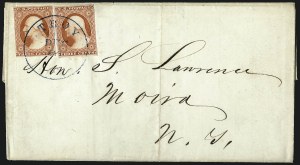 TROY
Hon. S. Lawrence
Moira
N. Y.